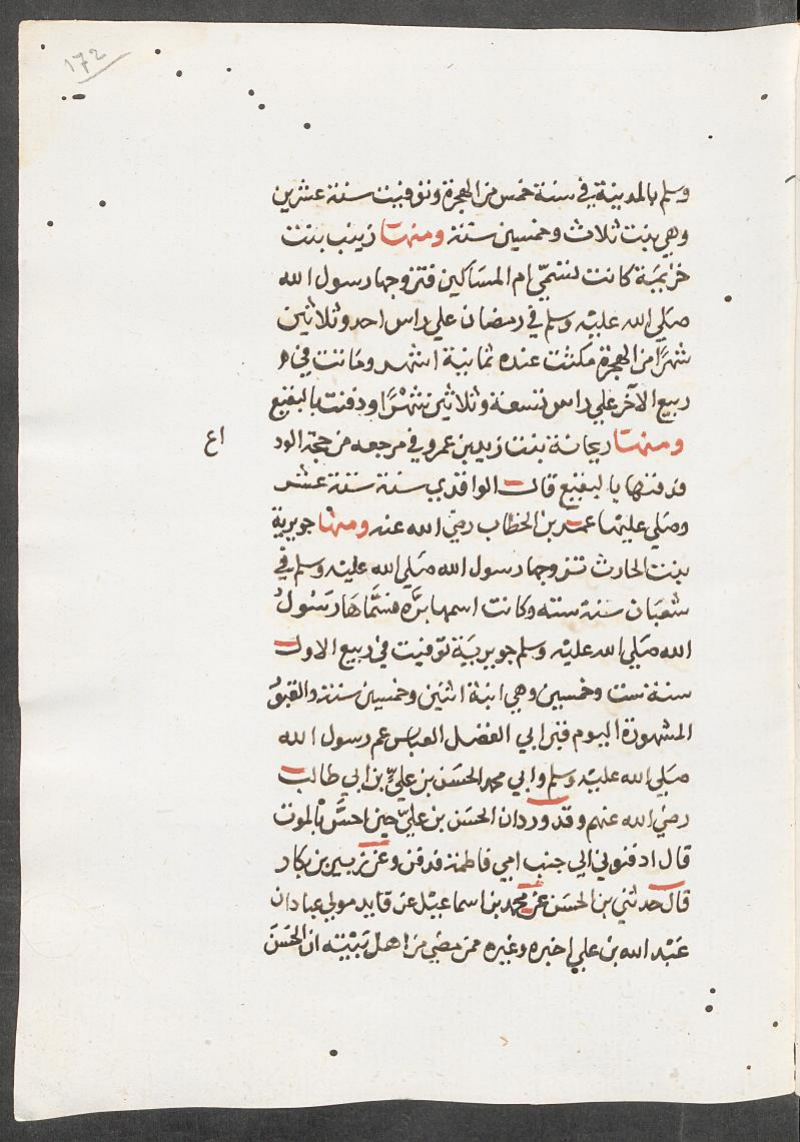 172
وسلم بالمدينة في سنة خمس من الهجرة وتوفيت سنة عشرين
وهي بنت ثلاث وخمسين سنة ومنها زينب بنت
خزيمة كانت تسمي ام المساكين فتزوجها رسول الله
صلي الله عليه وسلم في رمضان علي راس احد وثلاثين
شهرا من الهجرة مكثت عنده ثمانية اشهر وماتت في
ربيع الآخر علي راس تسعة وثلاثين شهرا ودفنت بالبقيع
ومنها ريحانة بنت زيد بن عمرو في مرجعه من حجة الود
اع
فدفنها بالبقيع قال الواقدي سنة ستة عشر
وصلي عليها عمر بن الخطاب رضي الله عنه ومنها جويرية
بنت الحارث تزوجها رسول الله صلي الله عليه وسلم في
شعبان سنة سته وكانت اسمها برَّه فسمَّاها رسول
الله صلي الله عليه وسلم جويرية توفيت في ربيع الاول
سنة ست وخمسين وهي ابنة اثنين وخمسين سنة والقبور
المشهورة اليوم قبر ابي الفضل العباس عم رسول الله
صلي الله عليه وسلم وابي محمد الحسن بن علي بن ابي طالب
رضي الله عنهم وقد ورد ان الحسن بن علي حين احسَّ بالموت
قال ادفنوني الي جنب امي فاطمة فدفن وعن زبير بن بكار
قال حدثني بن الحسن عن محمد بن اسماعيل عن قايد مولي عبادان
عبد الله بن علي اخبره وغيره ممن مضي من اهل بيته ان الحسن